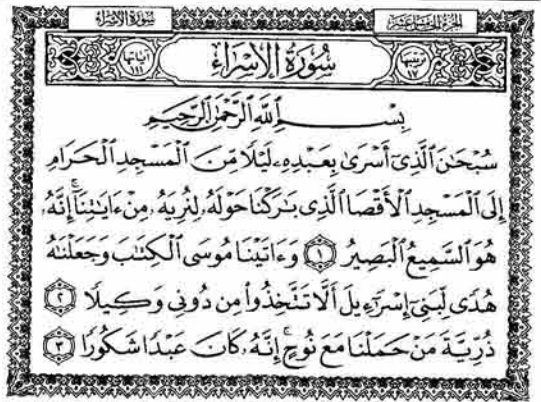 سُورَةُ الإِسْرَاءِ الجُزْءُ الخَامِسَ عَشَرَ
آيَاتُهَا ١١١ سُورَةُ الإِسْرَاءِ تَرْتِيبُهَا ١٧
بِسْمِ ٱللَّهِ ٱلرَّحْمَٰنِ ٱلرَّحِيمِ
سُبْحَٰنَ ٱلَّذِىٓ أَسْرَىٰ بِعَبْدِهِۦ لَيْلًا مِّنَ ٱلْمَسْجِدِ ٱلْحَرَامِ
إِلَى ٱلْمَسْجِدِ ٱلْأَقْصَا ٱلَّذِى بَٰرَكْنَا حَوْلَهُۥ لِنُرِيَهُۥ مِنْ ءَايَٰتِنَآ ۚ إِنَّهُۥ
هُوَ ٱلسَّمِيعُ ٱلْبَصِيرُ ١ وَءَاتَيْنَا مُوسَى ٱلْكِتَٰبَ وَجَعَلْنَٰهُ
هُدًى لِّبَنِىٓ إِسْرَٰٓءِيلَ أَلَّا تَتَّخِذُوا۟ مِن دُونِى وَكِيلًا ٢
ذُرِّيَّةَ مَنْ حَمَلْنَا مَعَ نُوحٍ ۚ إِنَّهُۥ كَانَ عَبْدًا شَكُورًا ٣